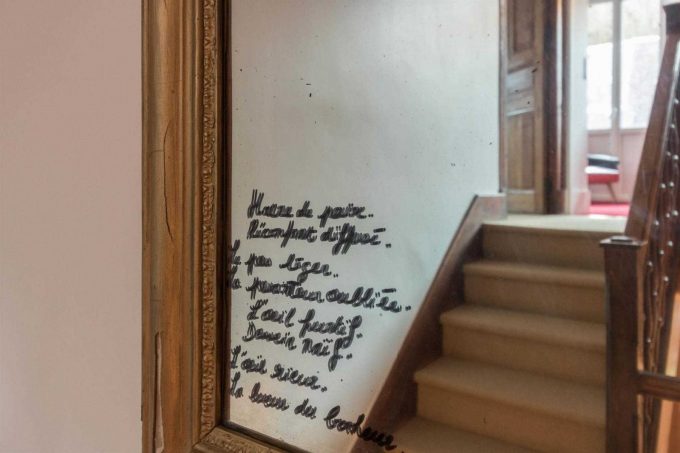 Havre de paix..
Réconfort diffusé..
Le pas léger..
La pesanteur oubliée..
L'œil furtif..
Dessein naïf..
L'œil rieur..
La lueur du bonheur...